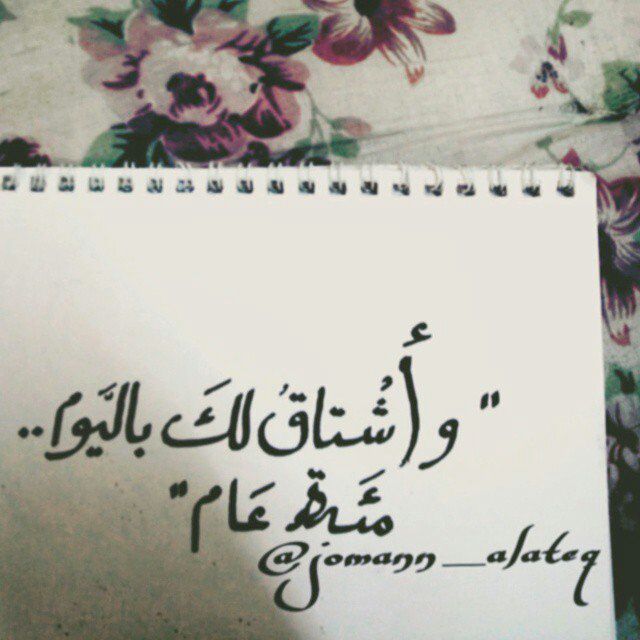 "وأَشتاقُ لكَ باليَوم..
مئَة عَام"
@jomann__alateq